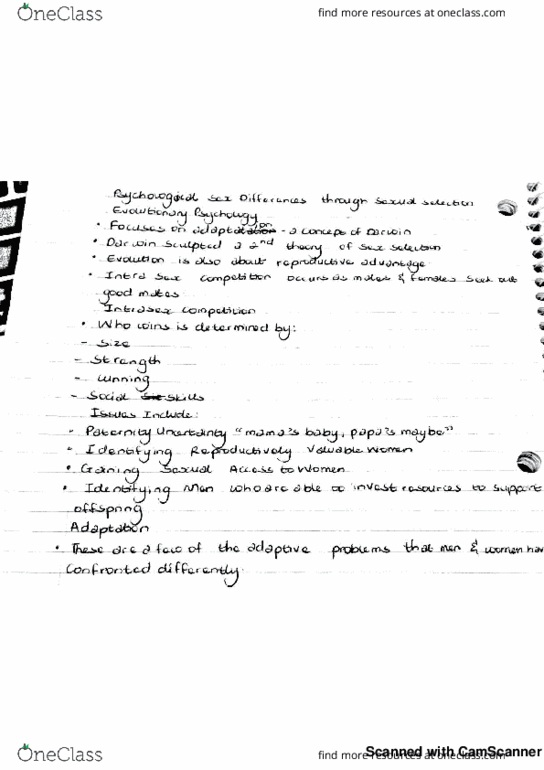 OneClass
find more resources at oneclass.com
Psychological Sex Differences through sexual selection
Evolutionary Psychology
• Focuses on adaptation - a concept of Darwin
• Darwin sculpted a 2nd theory of sex selection
• Evolution is also about reproductive advantage
• Intra sex competition occurs as males & females seek out
good mates
Intrasex competition
• Who wins is determined by:
- Size
- Strength
- cunning
- Social skills
Issues Include:
- Paternity Uncertainty "mama's baby, papa's maybe"
- Identifying Reproductively Valuable Women
• Gaining Sexual Access to Women
• Identifying Men who are able to invest resources to support
offspring
Adaptation
• These are a few of the adaptive problems that men & women hav
Confronted differently.
OneClass
find more resources at oneclass.com
Scanned with CamScanner